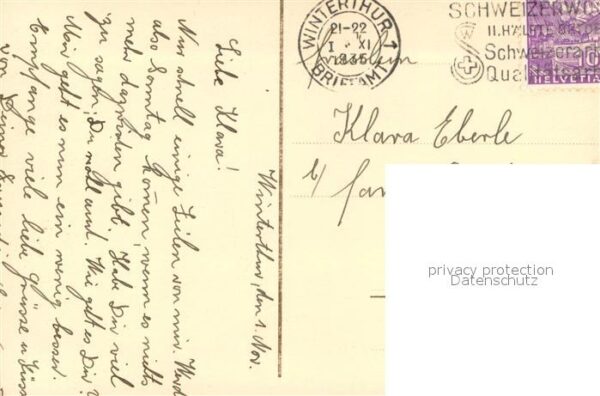 Winterthur, den 1. Nov.
Liebe Klara!
Nur schnell einige Zeilen von mir. Werde
also Sonntag kommen, wenn es nichts
mehr dazwischen gibt. Habe Dir viel
zu sagen, Du
Mir geht es nun ein wenig besser.
Empfange viele liebe Grüsse u. Küsse
von Deiner
WINTERTHUR 1
21-22
1. XI
1935
BRIEFAMT
SCHWEIZERWO
II. HÄLFTE OKTOBE
Schweizerart
Qualitätsarb
10
HELVETIA
Fräulein
Klara Eberle
b/
privacy protection
Datenschutz